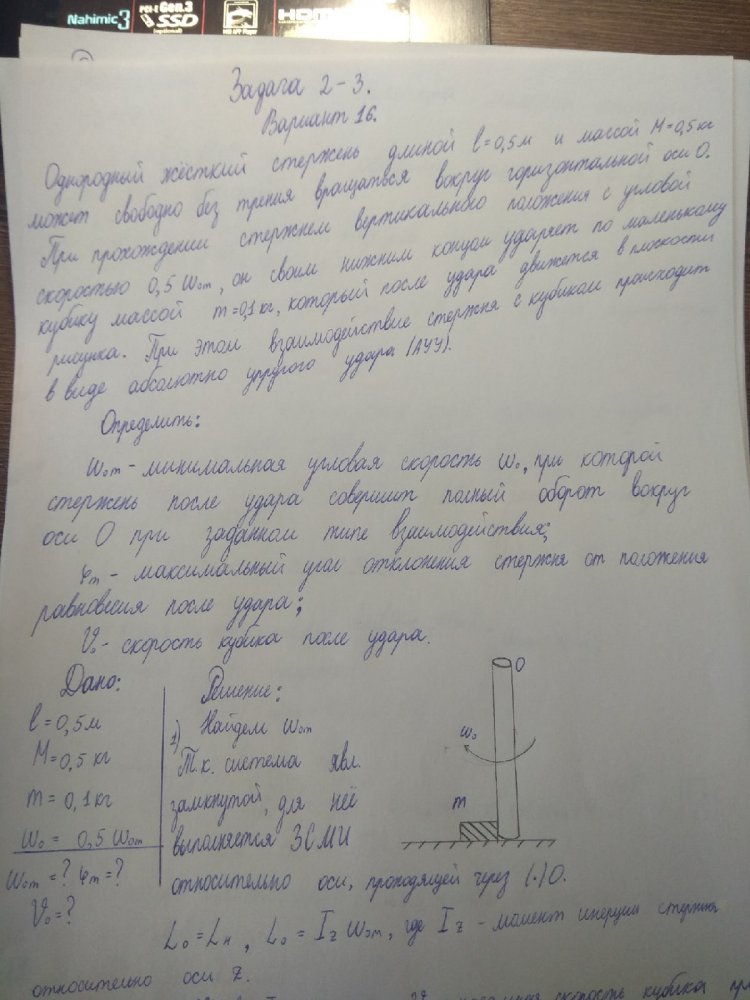 Nahimic 3
PCI-E Gen.3
SSD
HDMI
Задача 2-3.
Вариант 16.
Однородный жёсткий стержень длиной l=0,5м и массой M=0,5кг
может свободно без трения вращаться вокруг горизонтальной оси O.
При прохождении стержнем вертикального положения с угловой
скоростью 0,5 ω₀ₘ, он своим нижним концом ударяет по маленькому
кубику массой m=0,1кг, который после удара движется в плоскости
рисунка. При этом взаимодействие стержня с кубиком происходит
в виде абсолютно упругого удара (АУУ).
Определить:
ω₀ₘ - минимальная угловая скорость ω₀, при которой
стержень после удара совершит полный оборот вокруг
оси O при заданном типе взаимодействия;
φₘ - максимальный угол отклонения стержня от положения
равновесия после удара;
V₀ - скорость кубика после удара.
Дано:
l=0,5м
M=0,5 кг
m=0,1 кг
ω₀=0,5ω₀ₘ
ω₀ₘ=? φₘ=?
V₀=?
Решение:
1) Найдем ω₀ₘ
Т.к. система явл.
замкнутой, для неё
выполняется ЗСМИ
относительно оси, проходящей через (·)O.
O
ω₀
m
L₀=Lк, L₀=I_z ω₀ₘ, где I_z - момент инерции стержня
относительно оси z.
скорость кубика